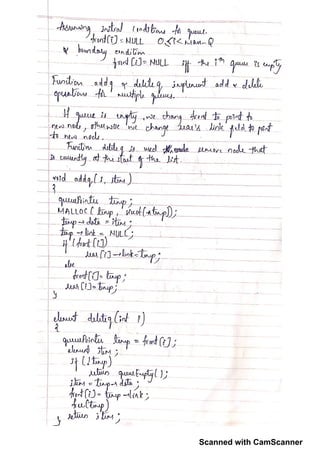 Assuming initial conditions for queue.
front[i] = NULL 0≤i<MAX-Q
& boundary condition.
front[i] = NULL iff the ith queue is empty
Function addq & deleteq implement add & delete
operations for multiple queues.
If queue is empty, we change front to point to
new node, otherwise we change rear's link field to point
to new node.
Function deleteq is used remove node that
is currently at the start of the list.
void addq(i, item)
{
queuePointer temp;
MALLOC (temp, sizeof(*temp));
temp→data = item;
temp→link = NULL;
if (front[i])
rear[i]→link=temp;
else
front[i]= temp;
rear[i]= temp;
}
element deleteq(int i)
{
queuePointer temp = front[i];
element item;
if (!temp)
return queueEmpty();
item = temp→data;
front[i]= temp→link;
free(temp)
return item;
}
Scanned with CamScanner